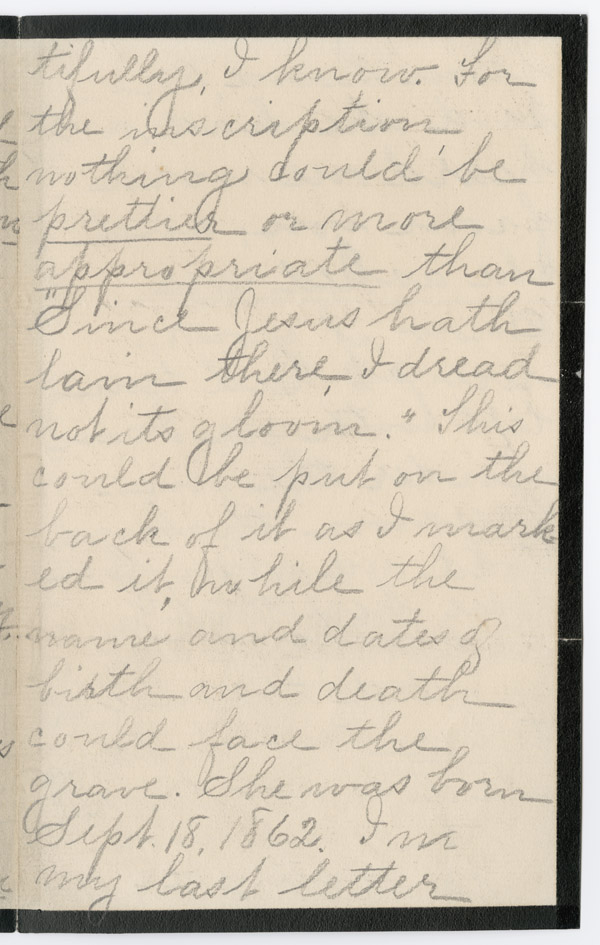 tifully, I know. For
the inscription
nothing could be
prettier or more
appropriate than
"Since Jesus hath
lain there I dread
not its gloom." This
could be put on the
back of it as I mark
ed it, while the
name and dates of
birth and death
could face the
grave. She was born
Sept. 18, 1862. In
my last letter